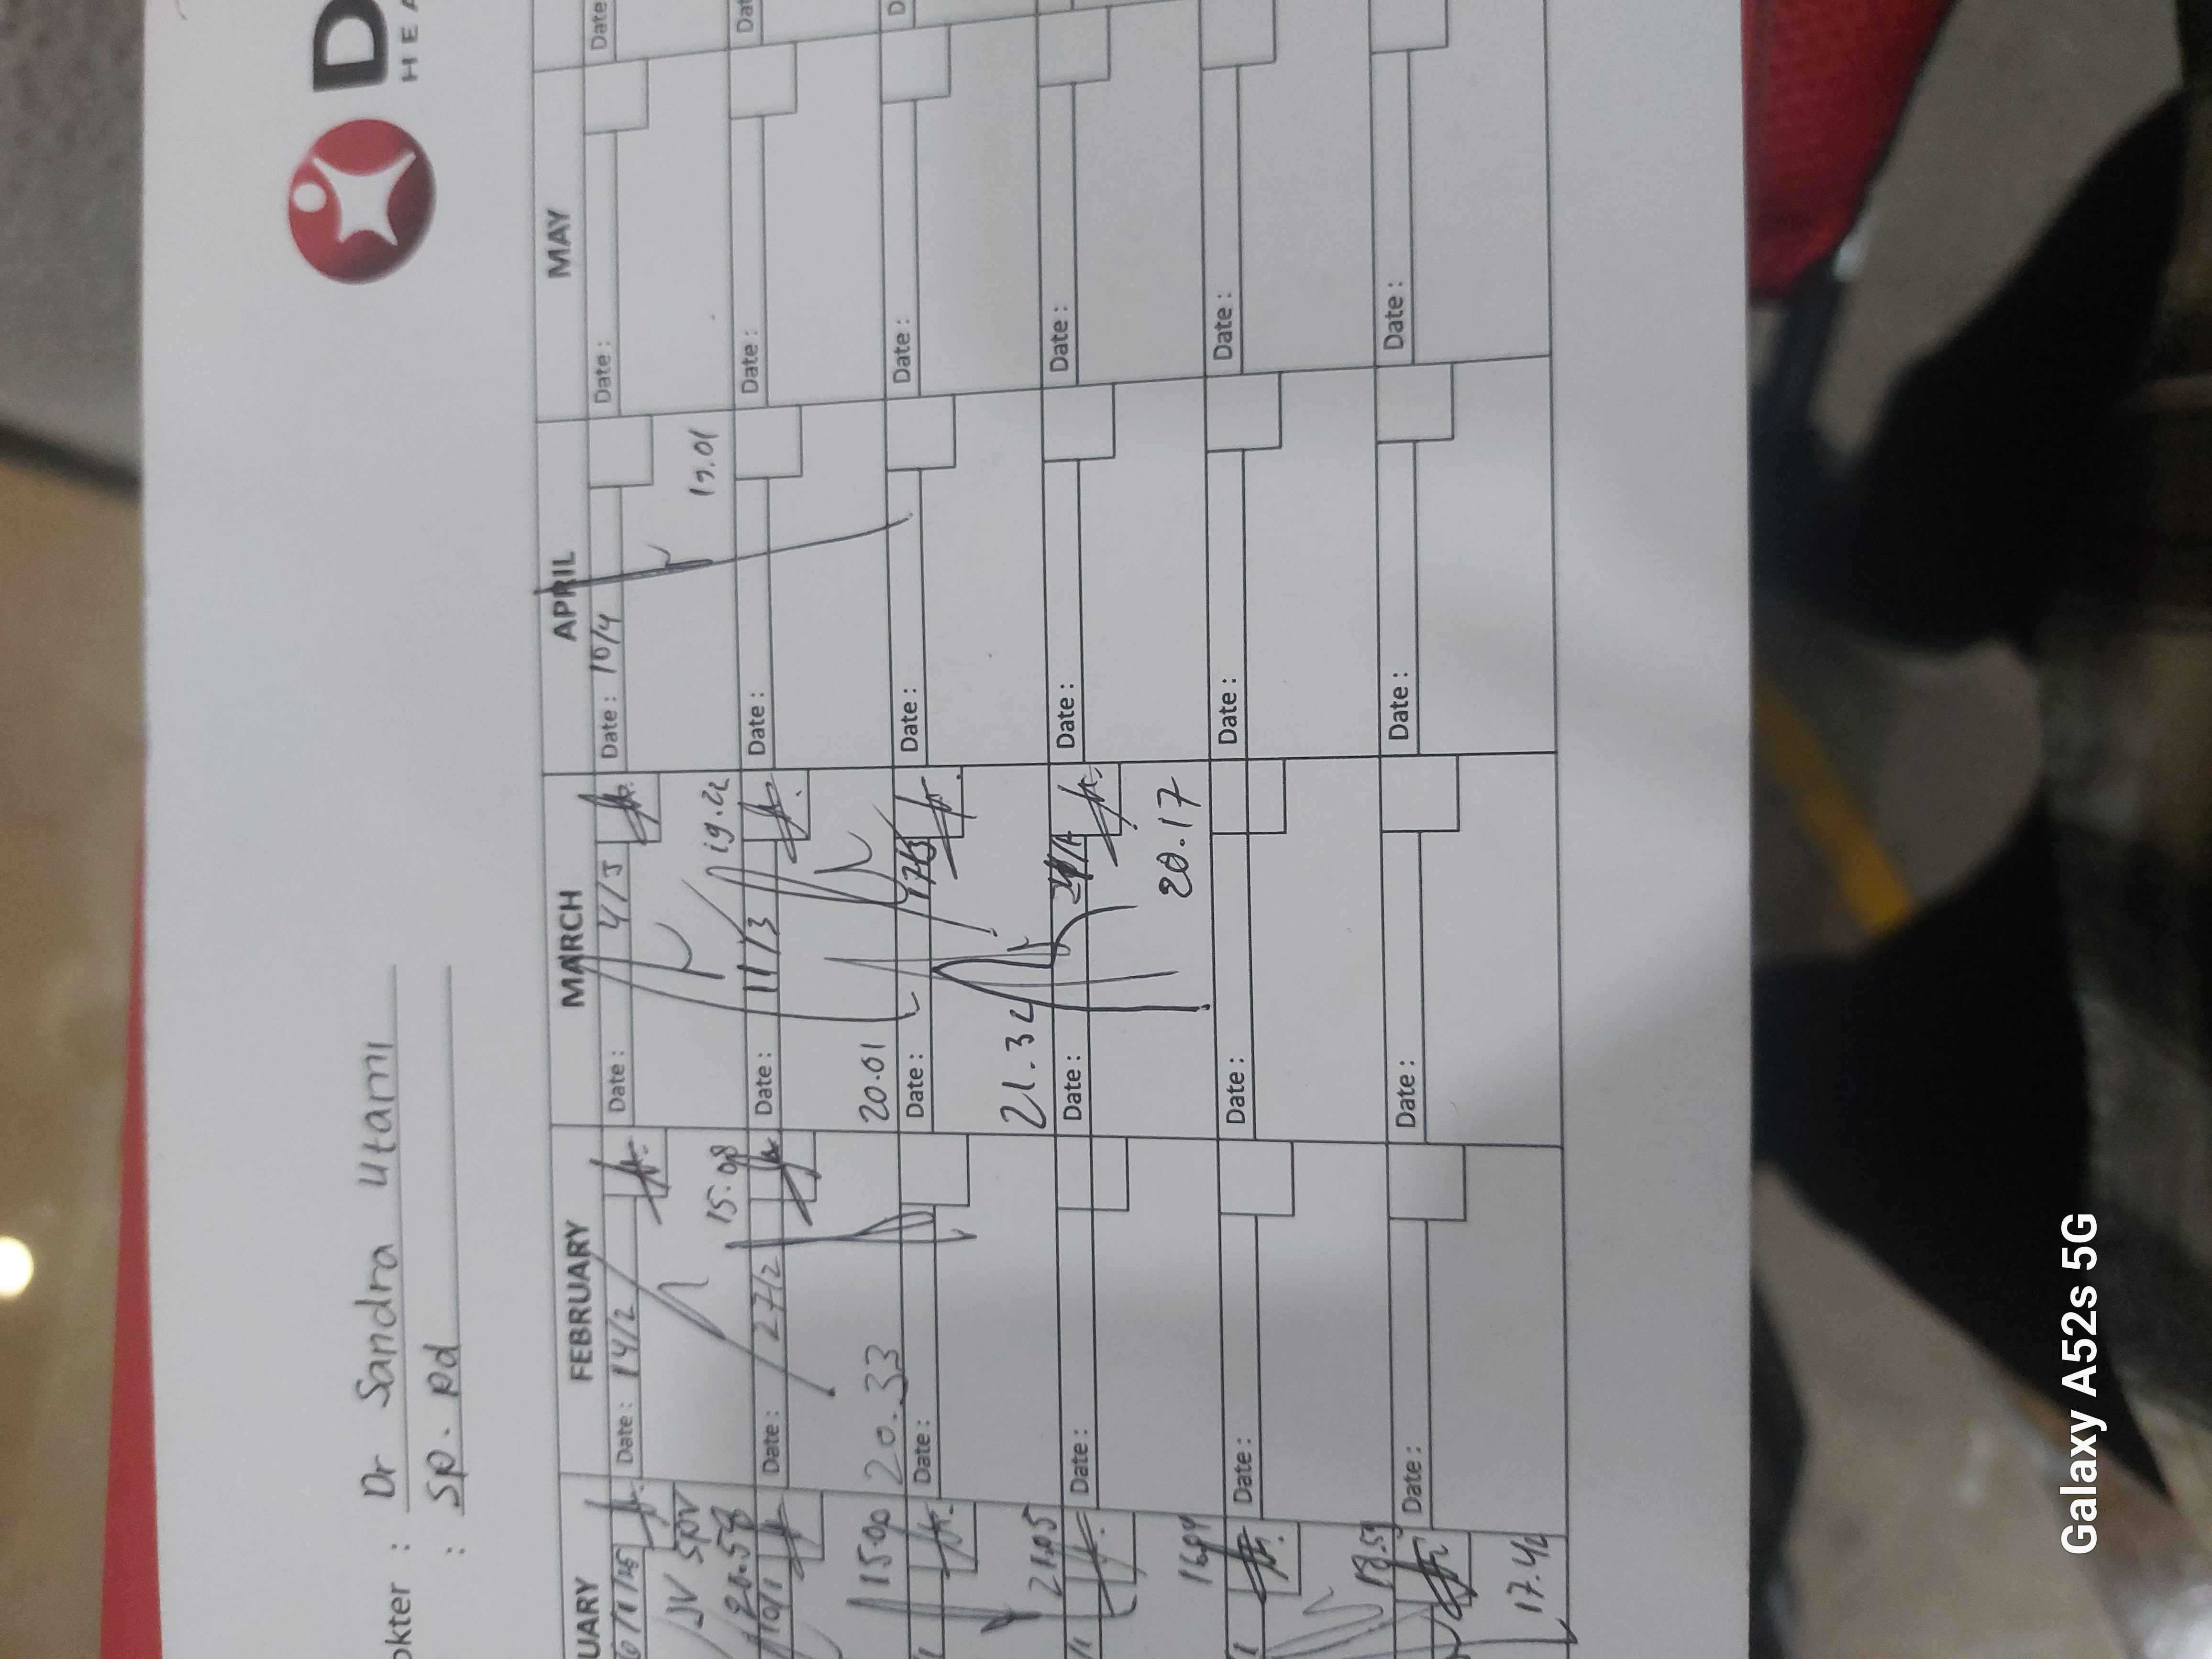 D
HEA
okter : Dr Sandra Utami
: Sp. Pd
UARY FEBRUARY MARCH APRIL MAY
Date : 14/2 Date : Date : 10/4 Date : Date
15.08 19.01
20.58
10/1 Date : 27/2 Date : 11/3 Date : Date : Dat
1500 20.33 20.01
Date : Date : Date : Date : D
2105 21.32
Date : Date : Date : Date :
1604 20.17
Date : Date : Date : Date :
18.59
Date : Date : Date : Date :
17.42
Galaxy A52s 5G